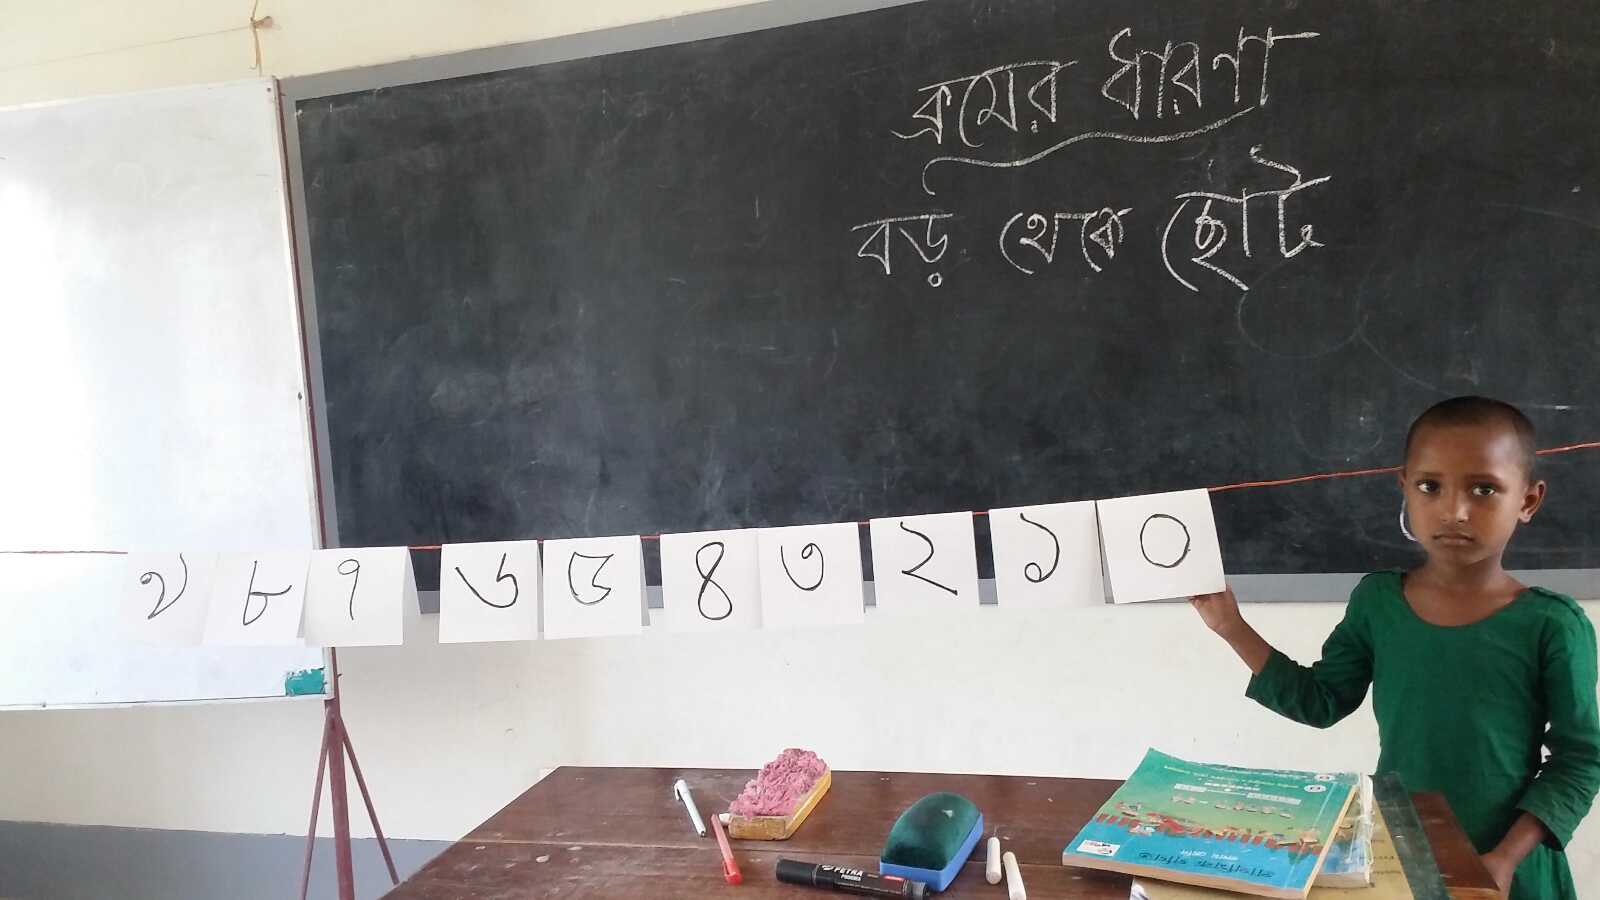 ক্রমের ধারণা
বড় থেকে ছোট
৯ ৮ ৭ ৬ ৫ ৪ ৩ ২ ১ ০
PETRA